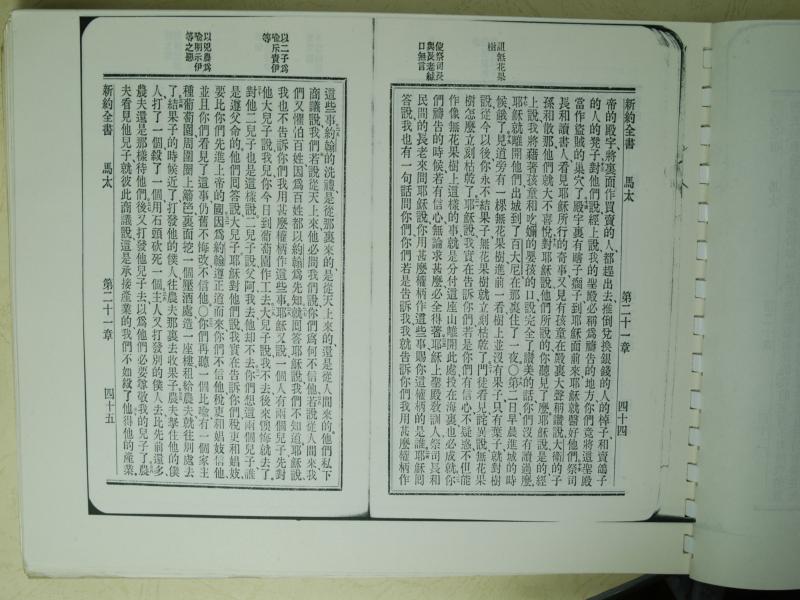 詛無花果樹
使祭司長與長老緘口無言
新約全書 馬太 第二十一章 四十四
帝的殿宇將裏面作買賣的人都趕出去推倒兌換銀錢的人的棹子和賣鴿子
的人的凳子對他們說經上說我的聖殿必稱爲禱告的地方你們竟將這聖殿
當作盜賊的巢穴了殿宇裏有瞎子瘸子到耶穌面前來耶穌就醫好他們祭司
長和讀書人看見耶穌所行的奇事又見有孩童在殿裏大聲稱讚說大衛的子
孫和散那他們就大不喜悅對耶穌說他們所說的你聽見了麽耶穌說是的經
上說我將藉著孩童和吃嬭的嬰孩的口說完全了讚美的話你們沒有讀過麽
耶穌就離開他們出城到了百大尼在那裏住了一夜○第二日早晨進城的時
候餓了見道旁有一棵無花果樹進前一看樹上並沒有果子只有葉子就對樹
說從今以後你永不結果子無花果樹就立刻枯乾了門徒看見詫異說無花果
樹怎麽立刻枯乾了耶穌說我實在告訴你們若是你們有信心不疑惑不但能
作像無花果樹上這樣的事就是分付這座山離開此處投在海裏也必成就你
們禱告的時候若有信心無論求甚麽必全得著耶穌上聖殿敎訓人祭司長和
民間的長老來問耶穌說你用甚麽權柄作這些事賜你這權柄的是誰耶穌囘
答說我也有一句話問你們你們若是告訴我我就告訴你們我用甚麽權柄作
以二子爲喩斥責伊等
以兇農爲喩明示伊等之惡
這些事約翰的洗禮是從那裏來的是從天上來的還是從人間來的他們私下
商議說我們若說從天上來他必問我們說你們爲何不信他若說從人間來我
們又懼怕百姓因爲百姓都以約翰爲先知就囘答耶穌說我們不知道耶穌說
我也不告訴你們我用甚麽權柄作這些事耶穌又說一個人有兩個兒子先對
他大兒子說我兒你今日到葡萄園作工去大兒子說我不去後來懊悔就去了
對他二兒子也是這樣說二兒子說父阿我去他却不去你們想這兩個兒子誰
是遵父命的他們囘答說大兒子耶穌對他們說我實在告訴你們稅吏和娼妓
要比你們先進上帝的國因爲約翰遵正道而來你們不信他稅吏和娼妓信他
並且你們看見了這事仍舊不悔改不信他○你們再聽一個比喩有一個家主
種葡萄園周圍圈上籬笆裏面挖一個壓酒處造一座樓租給農夫就往別處去
了結果子的時候近了打發他的僕人往農夫那裏去收果子農夫拏住他的僕
人打了一個殺了一個用石頭砍死一個主人又打發別的僕人去比先前還多
農夫還是那樣待他們後又打發他兒子去以爲他們必要尊敬我的兒子了農
夫看見他兒子就彼此商議說這是承接產業的我們不如殺了他得他的產業
新約全書 馬太 第二十一章 四十五